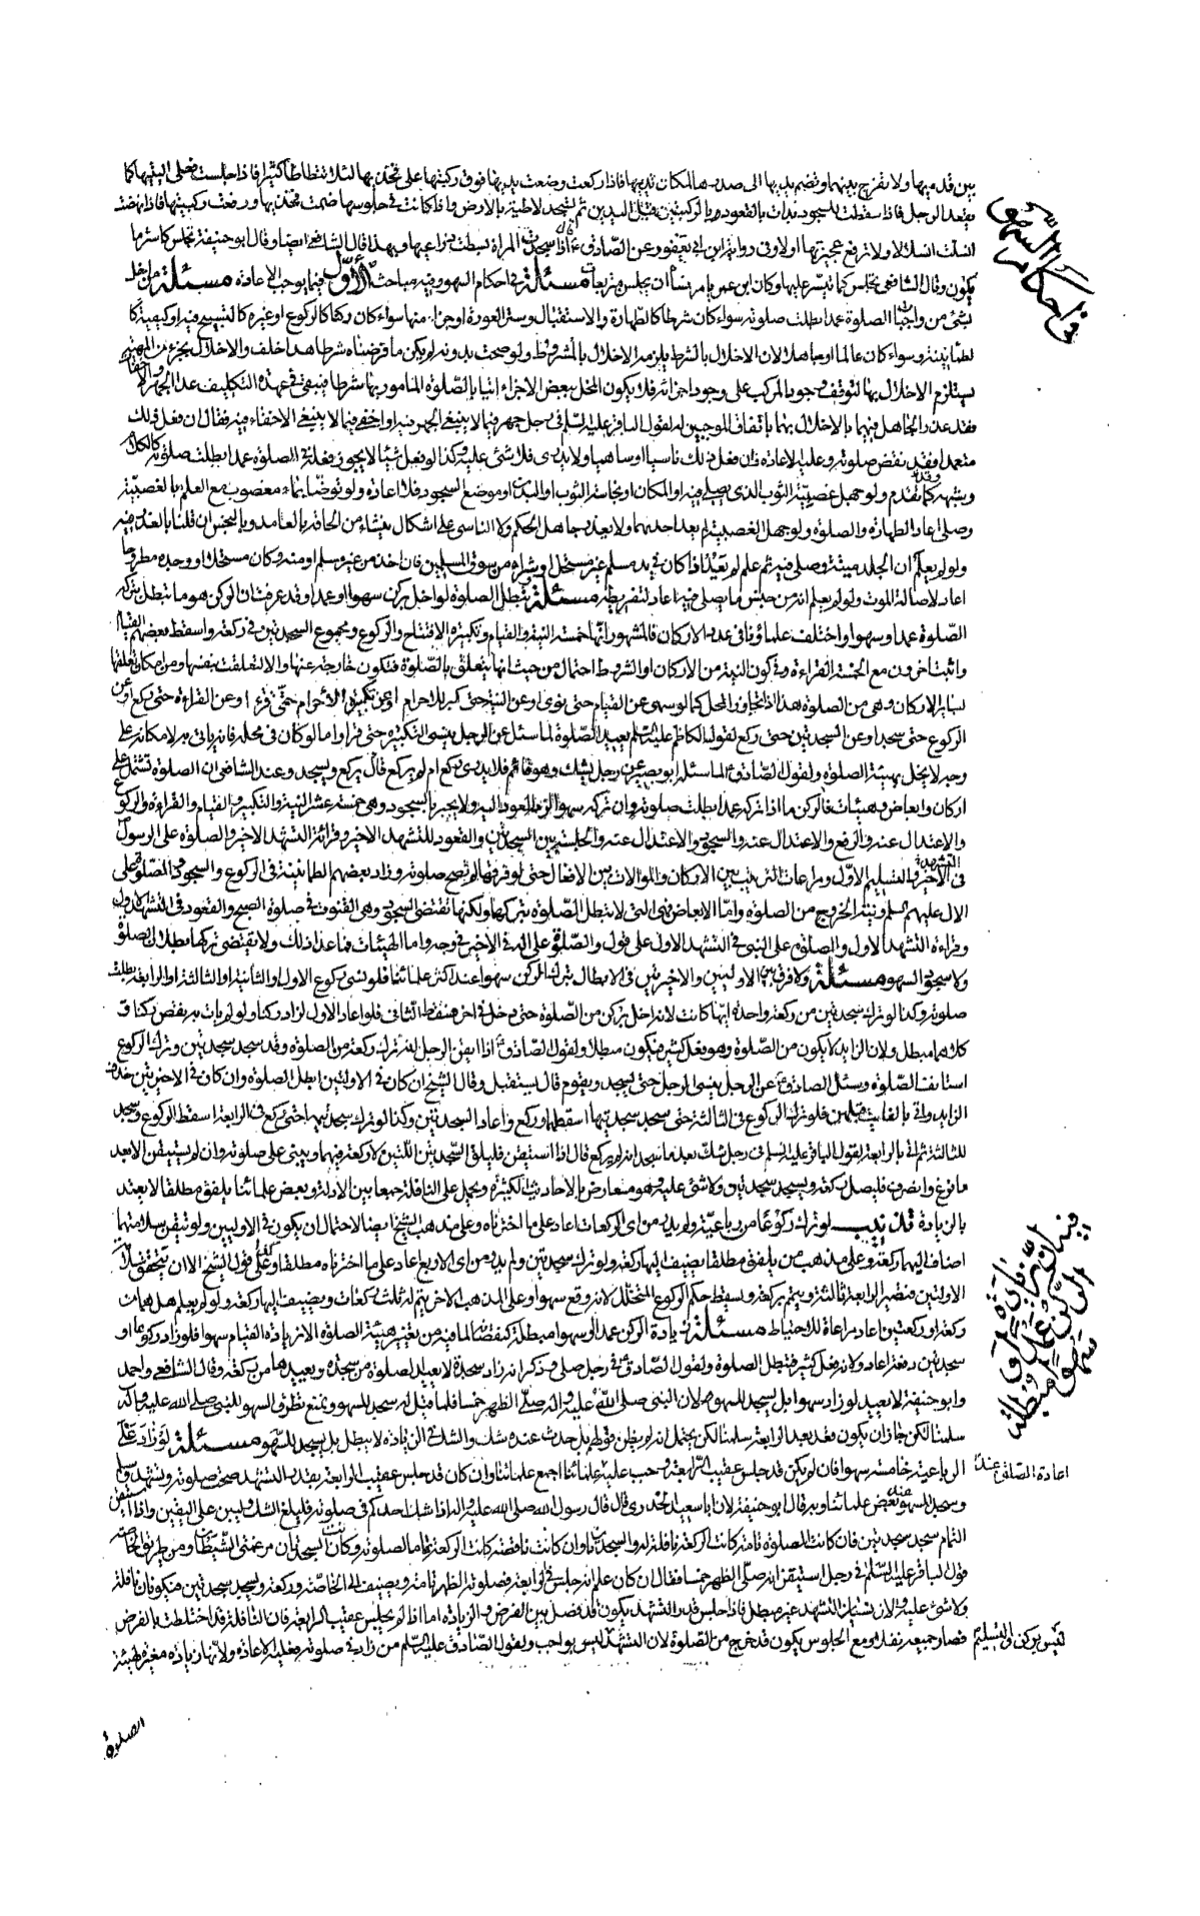 بين قدميها ولا تفرج بينهما وتضم يديها الى صدرها لمكان ثدييها فاذا ركعت وضعت يديها فوق ركبتيها على فخذيها لئلا تتطأطأ كثيرا فاذا جلست فعلى اليتيها كما
يقعد الرجل فاذا سقطت للسجود بدات بالقعود وبالركبتين قبل اليدين ثم تسجد لاطئة بالارض واذا كانت في جلوسها ضمت فخذيها ورفعت ركبتيها فاذا نهضت
انسلت انسلالا ولا ترفع عجيزتها اولا وفي رواية ابن ابي يعفور عن الصادق ع قال اذا سجدت المرأة بسطت ذراعيها وبهذا قال الشافعي ايضا وقال ابو حنيفة تجلس كاستر ما
يكون وقال الشافعي تجلس كما تيسر عليها وكان ابن عمر يامر نساءه ان يجلسن متربعات مسئلة في احكام السهو وفيه مباحث الأول فيما يوجب الاعادة مسئلة من اخل
بشئ من واجبات الصلوة عمدا بطلت صلوته سواء كان شرطا كالطهارة والاستقبال وستر العورة او جزءا منها سواء كان ركنا كالركوع او غيره كالتسبيح فيه او كيفية كا
لطمأنينة وسواء كان عالما او جاهلا لان الاخلال بالشرط يلزمه الاخلال بالمشروط ولو صحت بدونه لم يكن ما فرضناه شرطا هذا خلف والاخلال بجزء من المهية
يستلزم الاخلال بها لتوقف وجود المركب على وجود اجزائه فلا يكون المخل ببعض الاجزاء اتيا بالصلوة المامور بها شرطا فيبقى في عهدة التكليف عدا الجهر والاخفات
فقد عذر الجاهل فيهما بالاخلال بهما باتفاق الموجبين له لقول الباقر عليه السلم في رجل جهر فيما لا ينبغي الجهر فيه او اخفى فيما لا ينبغي الاخفاء فيه فقال ان فعل ذلك
متعمدا فقد نقض صلوته وعليه الاعادة فان فعل ذلك ناسيا او ساهيا او لا يدري فلا شئ عليه وكذا لو فعل شيئا لا يجوز فعله في الصلوة عمدا بطلت صلوته كالكلام
وشبهه كما تقدم ولو جهل غصبية الثوب الذي يصلى فيه او المكان او نجاسة الثوب او البدن او موضع السجود فلا اعادة ولو توضأ بماء مغصوب مع العلم بالغصبية
وصلى اعاد الطهارة والصلوة ولو جهل الغصبية لم يعد احدهما ولا يعذر جاهل الحكم ولا الناسي على اشكال ينشاء من الحاقه بالعامد وبالنجس ان قلنا بالعذر فيه
ولو لم يعلم ان الجلد ميتة وصلى فيه ثم علم لم يعد اذا كان في يد مسلم غير مستحل او شراه من سوق المسلمين فان اخذ من غير مسلم او منه وكان مستحلا او وجده مطروحا
اعاد لاصالة الموت ولو لم يعلم انه من جنس ما يصلى فيه اعاد لتفريطه مسئلة تبطل الصلوة لو اخل بركن سهوا او عمدا وقد عرفت ان الركن هو ما تبطل بتركه
الصلوة عمدا وسهوا واختلف علماؤنا في عدد الاركان فالمشهور انها خمسة النية والقيام وتكبيرة الافتتاح والركوع ومجموع السجدتين في ركعة واسقط بعضهم القيام
واثبت اخرون مع الخمسة القراءة وفي كون النية من الاركان او الشروط احتمال من حيث انها يتعلق بالصلوة فتكون خارجة عنها والا لتعلقت بنفسها ومن امكان تعلقها
بسائر الاركان وهي من الصلوة هذا اذا تجاوز المحل كما لو سهى عن القيام حتى نوى او عن النية حتى كبر للاحرام او عن تكبيرة الاحرام حتى قرء او عن القراءة حتى ركع او عن
الركوع حتى سجد او عن السجدتين حتى ركع لقول الكاظم عليه السلم يعيد الصلوة لما سئل عن الرجل ينسى التكبيرة حتى قرا واما لو كان في محله فانه ياتي به لامكانه على
وجه لا يخل بهيئة الصلوة ولقول الصادق ع لما سئله ابو بصير عن رجل يشك وهو قائم فلا يدري ركع ام لم يركع قال يركع ويسجد وعند الشافعي ان الصلوة تشتمل على
اركان وابعاض وهيئات فالركن ما اذا تركه عمدا بطلت صلوته وان تركه سهوا لزمه العود اليه ولا يجبر بالسجود وهي خمسة عشر النية والتكبير والقيام والقراءة والركوع
والاعتدال عنه والرفع والاعتدال عنه والسجود والاعتدال عنه والجلسة بين السجدتين والقعود للتشهد الاخير وقرائة التشهد الاخير والصلوة على الرسول
في التشهد الاخير والتسليم الاول ومراعات الترتيب بين الاركان والموالات بين الافعال حتى لو فرقها لم تصح صلوته وزاد بعضهم الطمانينة في الركوع والسجود والصلوة على
الال عليهم السلم ونية الخروج من الصلوة واما الابعاض فهي التي لا تبطل الصلوة بتركها ولكنها تقتضى السجود وهي القنوت في صلوة الصبح والقعود في التشهد الاول
وقراءة التشهد الاول والصلوة على النبي في التشهد الاول على قول والصلوة على اله في الاخير في وجه واما الهيئات فما عدا ذلك ولا يقتضى تركها بطلان الصلوة
ولا سجود السهو مسئلة ولا فرق بين الاوليين والاخيرتين في الابطال بترك الركن سهوا عند اكثر علمائنا فلو نسى ركوع الاولى او الثانية او الثالثة او الرابعة بطلت
صلوته وكذا لو ترك سجدتين من ركعة واحدة ايها كانت لانه اخل بركن من الصلوة حتى دخل في اخر فسقط الثاني فلو اعاد الاول لزاد ركنا ولو لم يات به نقص ركنا و
كلاهما مبطل ولان الزايد لا يكون من الصلوة وهو فعل كثير فيكون مبطلا ولقول الصادق ع اذا ايقن الرجل انه ترك ركعة من الصلوة وقد سجد سجدتين وترك الركوع
استانف الصلوة وسئل الصادق ع عن الرجل ينسى الركوع حتى يسجد ويقوم قال يستقبل وقال الشيخ ان كان في الاولتين ابطل الصلوة وان كان في الاخيرتين حذف
الزايد واتى بالفايت فيلفق فلو ترك الركوع في الثالثة حتى سجد سجدتيها اسقطهما وركع واعاد السجدتين وكذا لو ترك سجدتيها حتى ركع في الرابعة اسقط الركوع وسجد
للثالثة ثم اتى بالرابعة لقول الباقر عليه السلم في رجل شك بعد ما سجد انه لم يركع قال اذا استيقن فليلق السجدتين اللتين لا ركعة فيهما ويبنى على صلوته وان لم يستيقن الا بعد
ما فرغ وانصرف فليصل ركعة ويسجد سجدتين ولا شئ عليه وهو معارض بالاحاديث الكثيرة ويحمل على النافلة جمعا بين الادلة وبعض علمائنا يلفق مطلقا لا يعتد
بالزيادة تذنيب لو ترك ركوعا من رباعية ولم يدر من اى الركعات اعاد على ما اخترناه وعلى مذهب الشيخ ايضا لاحتمال ان يكون في الاوليين ولو تيقن سلامتهما
اضاف اليها ركعة وعلى مذهب من يلفق مطلقا يضيف اليها ركعة ولو ترك سجدتين ولم يدر من اى الاربع اعاد على ما اخترناه مطلقا وكذا على قول الشيخ الا ان يتحقق سلامة
الاولتين فتصير الرابعة ثالثة ويتم بركعة ويسقط حكم الركوع المتخلل لانه وقع سهوا وعلى المذهب الاخر يتم له ثلث ركعات ويضيف اليها ركعة ولو لم يعلم هل هما من
ركعة او ركعتين اعاد مراعاة للاحتياط مسئلة زيادة الركن عمدا او سهوا مبطلة كنقصانه لما فيه من تغيير هيئة الصلوة الا زيادة القيام سهوا فلو زاد ركوعا او
سجدتين دفعة اعاد ولانه فعل كثير فتبطل الصلوة ولقول الصادق ع في رجل صلى وذكر انه زاد سجدة لا يعيد الصلوة من سجدة ويعيدها من ركعة وقال الشافعي واحمد
وابو حنيفة لا يعيد لو زاد سهوا بل يسجد للسهو لان النبي صلى الله عليه واله صلى الظهر خمسا فلما قيل له سجد للسهو ويمنع تطرق السهو للنبي صلى الله عليه واله
سلمنا لكن جاز ان يكون قعد بعد الرابعة سلمنا لكن يحتمل انه لم يظن قولهم بل حدث عنده شك والشك في الزيادة لا يبطل بل يسجد للسهو مسئلة لو زاد على
الرباعية خامسة سهوا فان لم يكن قد جلس عقيب الرابعة وجب عليه اعادة الصلوة عند علمائنا اجمع وان كان قد جلس عقيب الرابعة بقدر التشهد صحت صلوته وتشهد وسلم
وسجد للسهو عند بعض علمائنا وبه قال ابو حنيفة لان ابا سعيد الخدري قال قال رسول الله صلى الله عليه واله اذا شك احدكم في صلوته فليلغ الشك وليبن على اليقين واذا استيقن
التمام سجد سجدتين فان كانت الصلوة تامة كانت الركعة نافلة له والسجدتان وان كانت ناقصة كانت الركعة تماما لصلوته وكانت السجدتان مرغمتى الشيطان ومن طريق الخاصة
قول الباقر عليه السلم في رجل استيقن انه صلى الظهر خمسا فقال ان كان علم انه جلس في الرابعة فصلوته الظهر تامة ويضيف الى الخامسة ركعة ويسجد سجدتين فيكونان نافلة
ولا شئ عليه ولان نسيان التشهد غير مبطل فاذا جلس قدر التشهد يكون قد فصل بين الفرض والزيادة اما اذا لم يجلس عقيب الرابعة فان النافلة قد اختلطت بالفرض
فصار جميعه نفلا ومع الجلوس يكون قد خرج من الصلوة لان التشهد ليس بواجب ولقول الصادق عليه السلم من زاد في صلوته فعليه الاعادة ولانها زيادة مغيرة لهيئة
في احكام السهو
فيما ان زيادة الركن عمدا وسهوا مبطلة
اعادة الصلوة عند
ليس بركن والتسليم
الصلوة